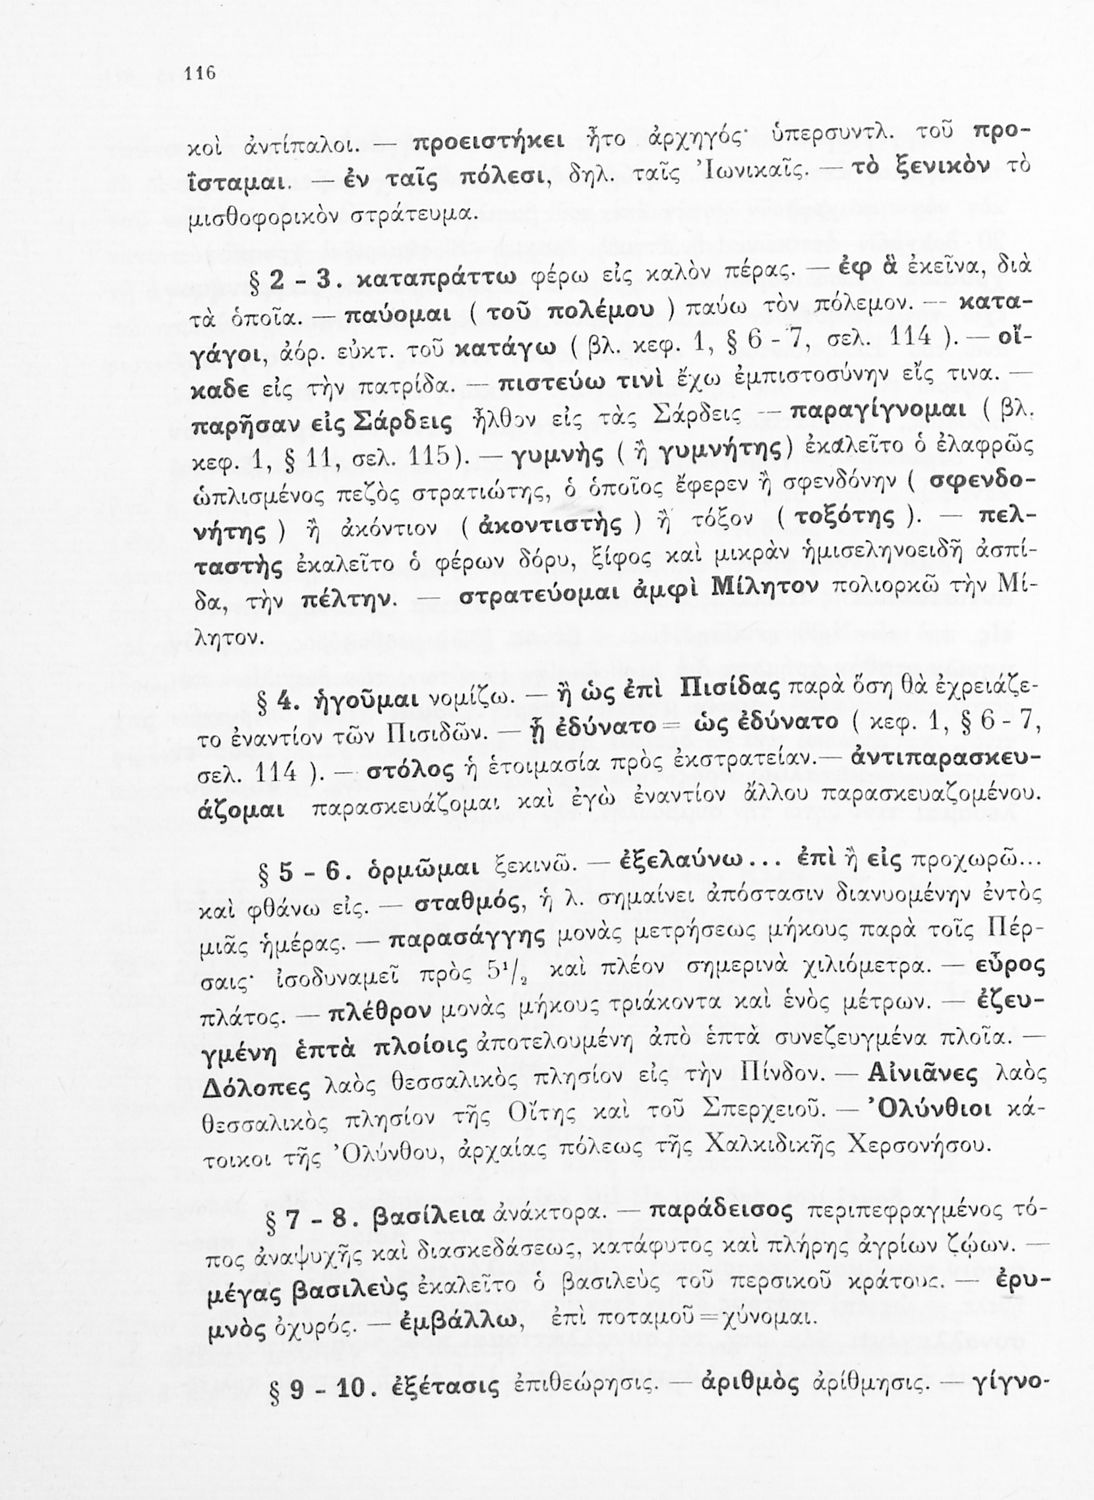 116
κοὶ ἀντίπαλοι. — προειστήκει ἦτο ἀρχηγός· ὑπερσυντλ. τοῦ προ-
ΐσταμαι. — ἐν ταῖς πόλεσι, δηλ. ταῖς Ἰωνικαῖς. — τὸ ξενικὸν τὸ
μισθοφορικὸν στράτευμα.
§ 2 - 3. καταπράττω φέρω εἰς καλὸν πέρας. — ἐφ ἃ ἐκεῖνα, διὰ
τὰ ὁποῖα. — παύομαι ( τοῦ πολέμου ) παύω τὸν πόλεμον. — κατα-
γάγοι, ἀόρ. εὐκτ. τοῦ κατάγω ( βλ. κεφ. 1, § 6 - 7, σελ. 114 ). — οἴ-
καδε εἰς τὴν πατρίδα. — πιστεύω τινὶ ἔχω ἐμπιστοσύνην εἴς τινα. —
παρῆσαν εἰς Σάρδεις ἦλθον εἰς τὰς Σάρδεις — παραγίγνομαι ( βλ.
κεφ. 1, § 11, σελ. 115). — γυμνὴς ( ἢ γυμνήτης) ἐκαλεῖτο ὁ ἐλαφρῶς
ὡπλισμένος πεζὸς στρατιώτης, ὁ ὁποῖος ἔφερεν ἢ σφενδόνην ( σφενδο-
νήτης ) ἢ ἀκόντιον ( ἀκοντιστὴς ) ἢ τόξον ( τοξότης ). — πελ-
ταστὴς ἐκαλεῖτο ὁ φέρων δόρυ, ξίφος καὶ μικρὰν ἡμισεληνοειδῆ ἀσπί-
δα, τὴν πέλτην. — στρατεύομαι ἀμφὶ Μίλητον πολιορκῶ τὴν Μί-
λητον.
§ 4. ἡγοῦμαι νομίζω. — ἢ ὡς ἐπὶ Πισίδας παρὰ ὅση θὰ ἐχρειάζε-
το ἐναντίον τῶν Πισιδῶν. — ᾗ ἐδύνατο = ὡς ἐδύνατο ( κεφ. 1, § 6 - 7,
σελ. 114 ). — στόλος ἡ ἑτοιμασία πρὸς ἐκστρατείαν.— ἀντιπαρασκευ-
άζομαι παρασκευάζομαι καὶ ἐγὼ ἐναντίον ἄλλου παρασκευαζομένου.
§ 5 - 6. ὁρμῶμαι ξεκινῶ. — ἐξελαύνω... ἐπὶ ἢ εἰς προχωρῶ...
καὶ φθάνω εἰς. — σταθμός, ἡ λ. σημαίνει ἀπόστασιν διανυομένην ἐντὸς
μιᾶς ἡμέρας. — παρασάγγης μονὰς μετρήσεως μήκους παρὰ τοῖς Πέρ-
σαις· ἰσοδυναμεῖ πρὸς 5¹/₂ καὶ πλέον σημερινὰ χιλιόμετρα. — εὖρος
πλάτος. — πλέθρον μονὰς μήκους τριάκοντα καὶ ἑνὸς μέτρων. — ἐζευ-
γμένη ἑπτὰ πλοίοις ἀποτελουμένη ἀπὸ ἑπτὰ συνεζευγμένα πλοῖα. —
Δόλοπες λαὸς θεσσαλικὸς πλησίον εἰς τὴν Πίνδον. — Αἰνιᾶνες λαὸς
θεσσαλικὸς πλησίον τῆς Οἴτης καὶ τοῦ Σπερχειοῦ. — Ὀλύνθιοι κά-
τοικοι τῆς Ὀλύνθου, ἀρχαίας πόλεως τῆς Χαλκιδικῆς Χερσονήσου.
§ 7 - 8. βασίλεια ἀνάκτορα. — παράδεισος περιπεφραγμένος τό-
πος ἀναψυχῆς καὶ διασκεδάσεως, κατάφυτος καὶ πλήρης ἀγρίων ζῴων. —
μέγας βασιλεὺς ἐκαλεῖτο ὁ βασιλεὺς τοῦ περσικοῦ κράτους. — ἐρυ-
μνὸς ὀχυρός. — ἐμβάλλω, ἐπὶ ποταμοῦ = χύνομαι.
§ 9 - 10. ἐξέτασις ἐπιθεώρησις. — ἀριθμὸς ἀρίθμησις. — γίγνο-